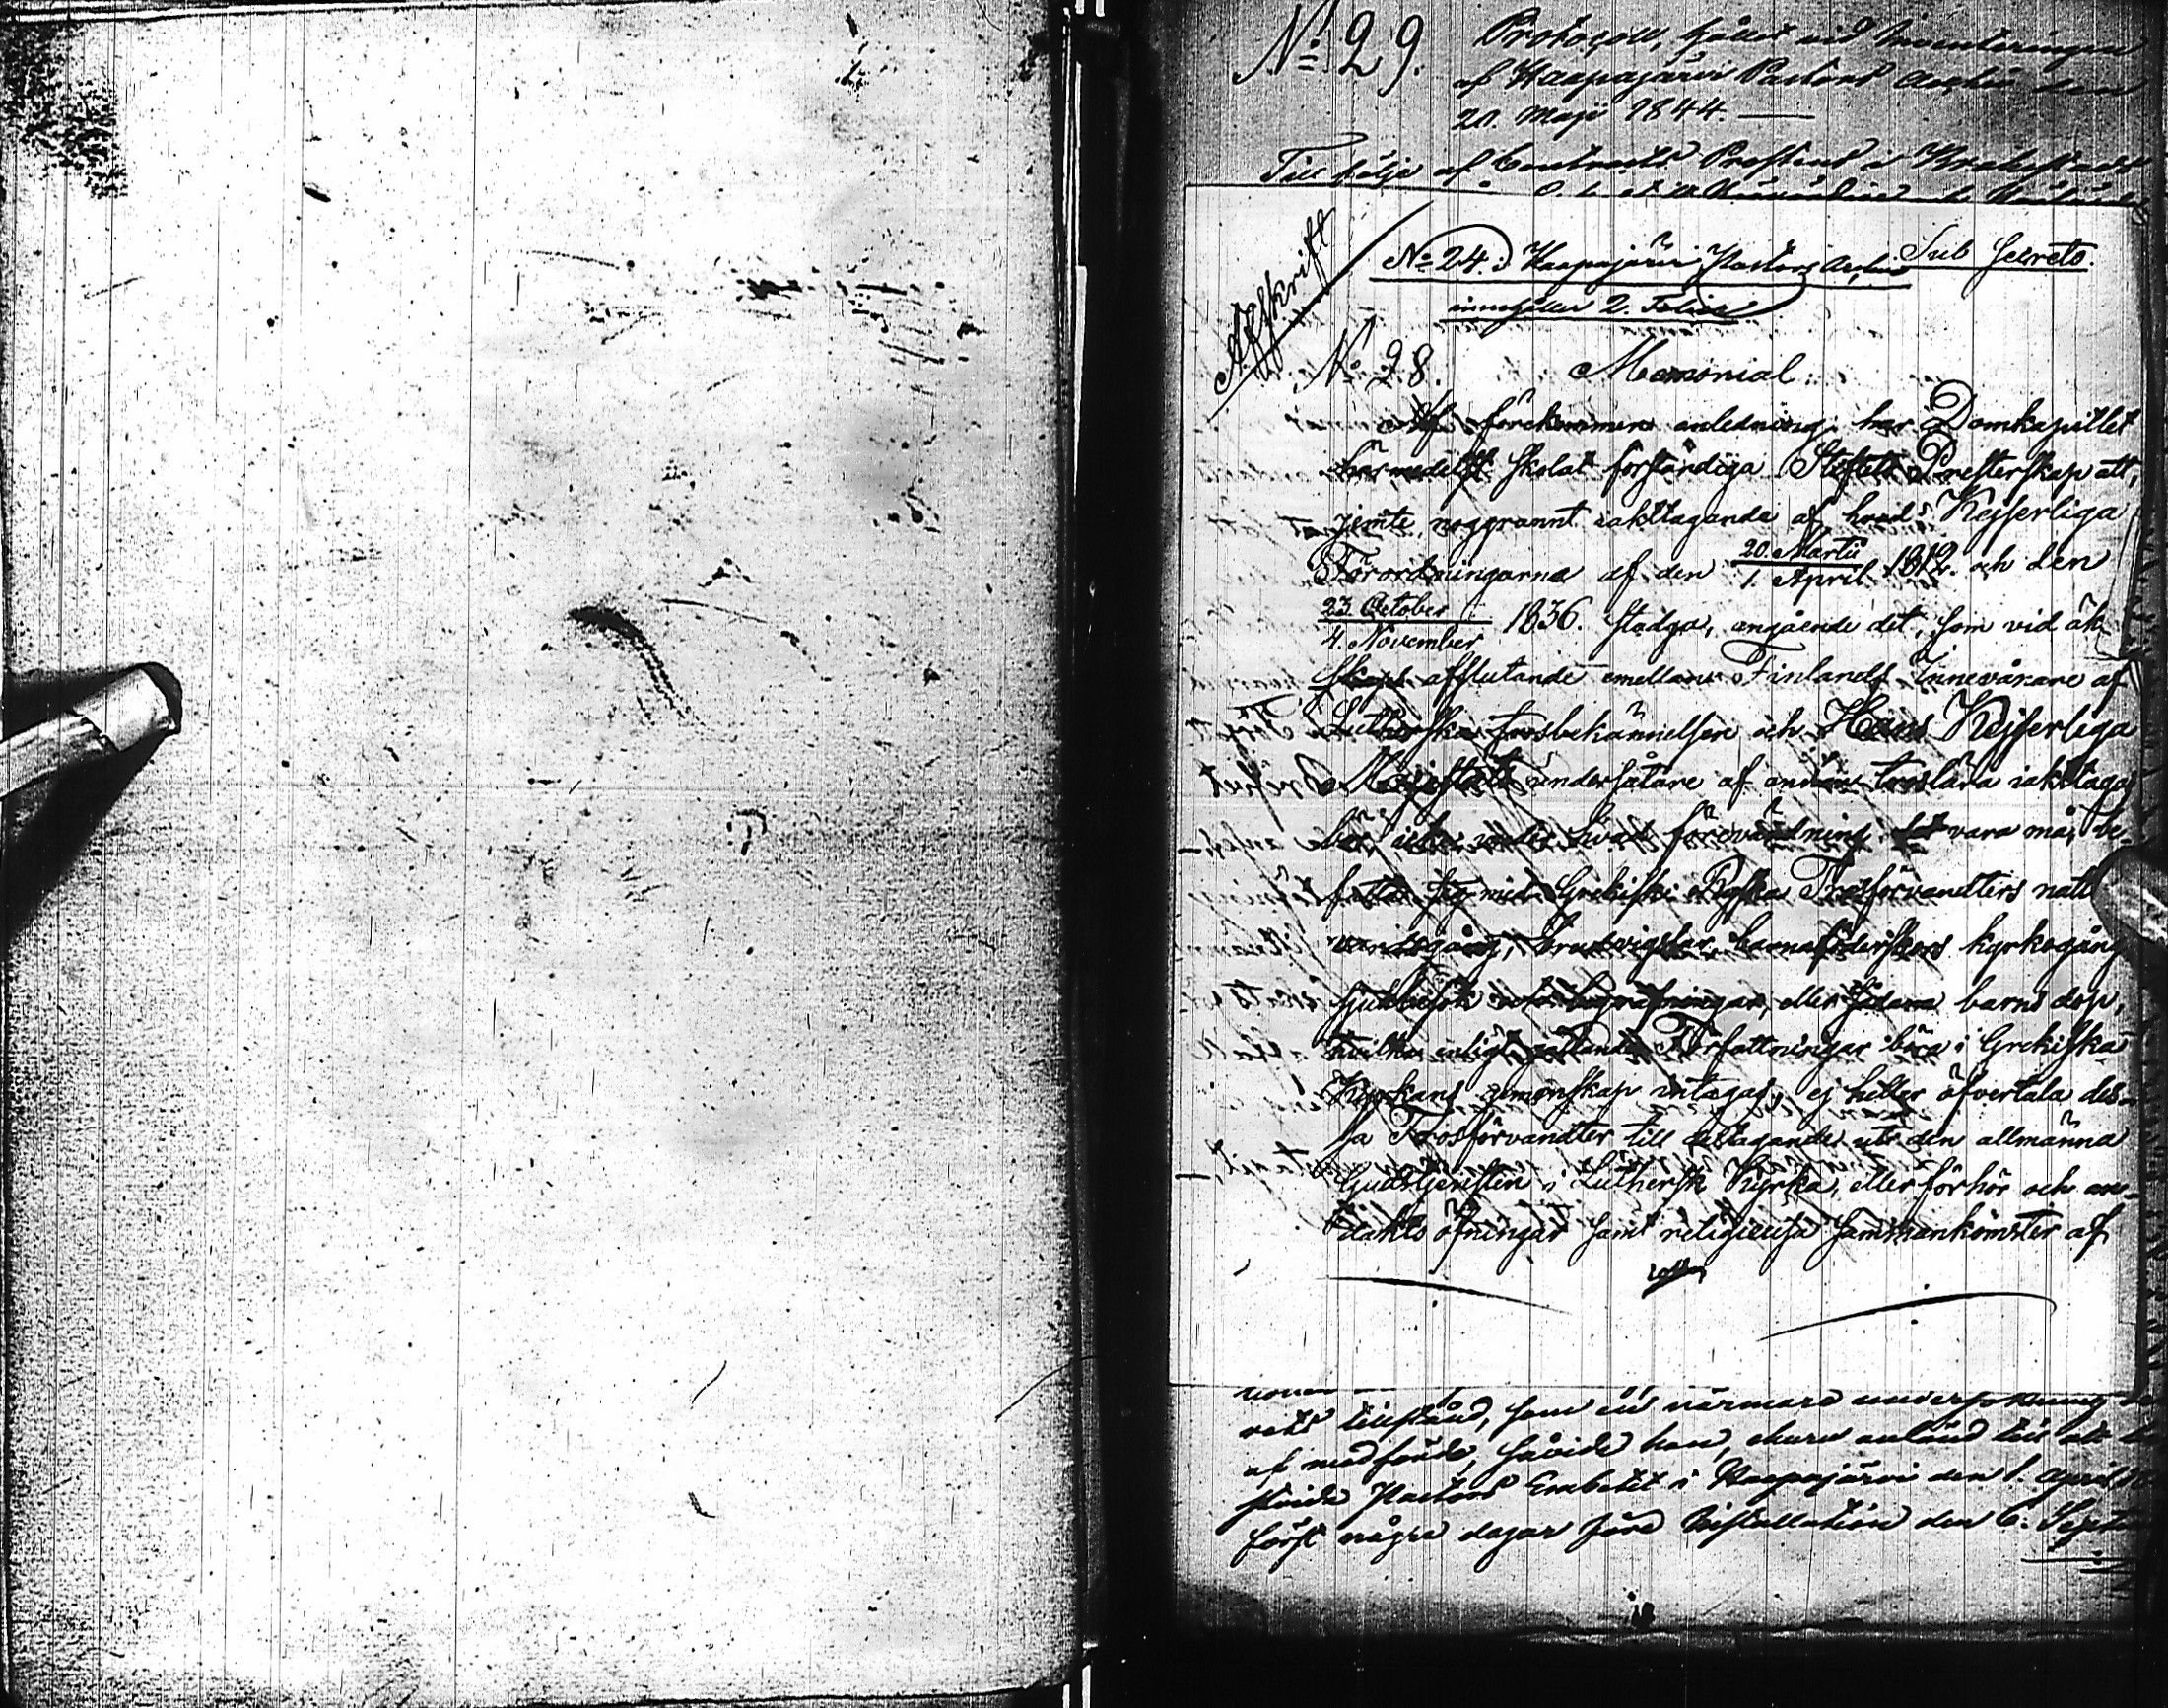 No 29. Protocoll, hållet vid Inventeringen
af Haapajärvi Pastors Archiv den
20. Maji 1844.
Till följe af Contracts Prostens i
Afskrift
No 24. i Haapajärvi Pastors Archiv
Sub Secreto.
innehåller 2. Folier
No 28. Memorial
Af förekommen anledning har Domkapitlet
härmedelst skolat förständiga Stiftets Presterskap att,
jemte noggrannt iakttagande af hvad Kejserliga
Förordningarna af den 20. Martii / 1. April 1812. och den
23 October / 4. November 1836. stadga, angående det, som vid äk-
skaps afslutande emellan Finlands Innevånare af
Lutherska trosbekännelsen och Hans Kejserliga
Majestäts undersåtare af annan troslära iakttagas
bör, icke under hvad förevändning det vara må, be-
fatta sig med Grekiskt Ryska Trosförvandters natt
vardsgång, brudvigslar, barnaföderskors kyrkogång
sjukbesök och begrafningar, eller sådana barns dop,
hvilka enligt gällande Författningar böra i Grekiska
Kyrkans gemenskap intagas, ej heller öfvertala des-
sa Trosförvandter till deltagande uti den allmänna
Gudstjensten i Luthersk Kyrka, eller förhör och an-
dakts öfningar samt religieusa sammankomster af
rets tillstånd, som vid närmare undersökning
af medförde, såvida han, ehuru anländ till att
Pastors Embetet i Haapajärvi den 1. April
först några dagar före Installation den 6. Septem